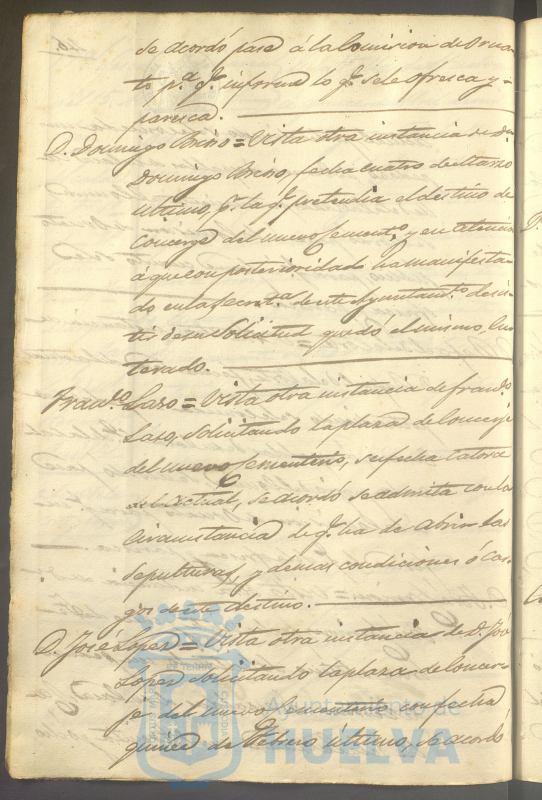 se acordó pase á la Comision de Orna-
to p.ª q.e informe lo q.e se le ofresca y
paresca.
D. Domingo = Vista otra instancia de D.n
Domingo fecha cuatro de Marzo
ultimo, p.r la q.e pretendia el destino de
Conserge del nuevo Sementer.o y en atencion
á que con posterioridad ha manifesta-
do en la Secret.a de este Ayuntam.to desis-
tir de su Solicitud quedó el mismo, En-
terado.
Fran.co Laso = Vista otra instancia de Fran.co
Laso, solicitando la plaza de Conserje
del nuevo Sementerio, su fecha catorce
del Actual, se acordó se admita con la
Circunstancia de q.e ha de Abrir las
Sepulturas, y demas condiciones ó car-
gos de este destino.
D. José Lopez = Vista otra instancia de D. José
Lopez solicitando la plaza de Conser-
je del nuevo Sementerio con fecha
quince de Febrero ultimo, se acordó
Ayuntamiento de
HUELVA